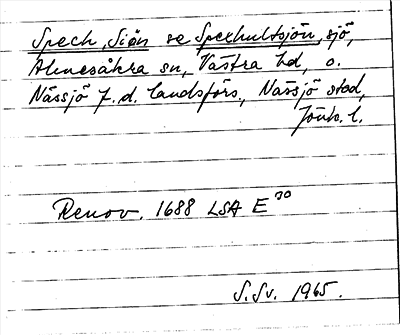 Spech, Siön se Spexhultsjön, sjö,
Almesåkra sn, Västra hd, o.
Nässjö f.d. landsförs., Nässjö stad,
Jönk. l.
Renov. 1688 LSA E 70
S. Sv. 1965.